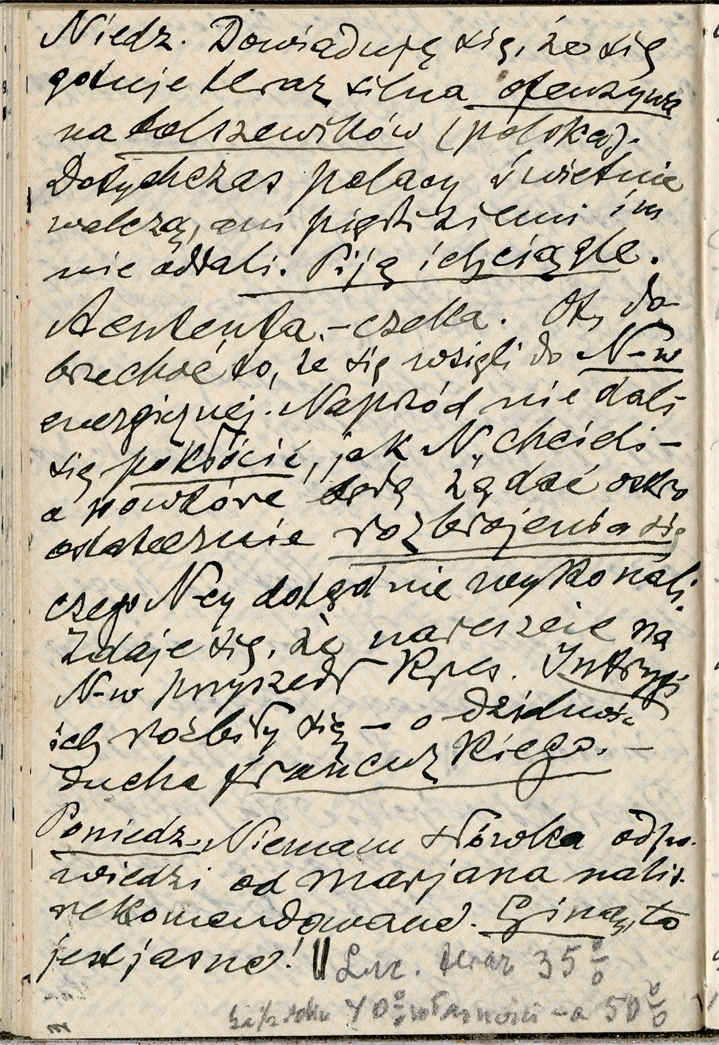 Niedz. Dowiaduję się, że się
gotuje teraz silna ofenzywa
na bolszewików (polska).
Dotychczas polacy świetnie
walczą, ani piędzi ziemi im
nie oddali. Biją ich ciągle.
Aententa – czeka. Oby do-
brze choć to, że się wzięli do N-w
energiczniej. Naprzód nie dali
się pokłócić, jak N. chcieli –
a powtóre będą żądać
ostatecznie rozbrojenia się
czego N-cy dotąd nie wykonali.
Zdaje się, że nareszcie na
N-w przyszedł kres. Intrygi
ich rozbiły się – o dzielność
ducha francuzkiego. –
Poniedz. Niemam słówka odpo-
wiedzi od Marjana na list
rekomendowano. Giną, to
jest jasne! || Luc. teraz 35%
za ½ roku 40% własności – a 50%